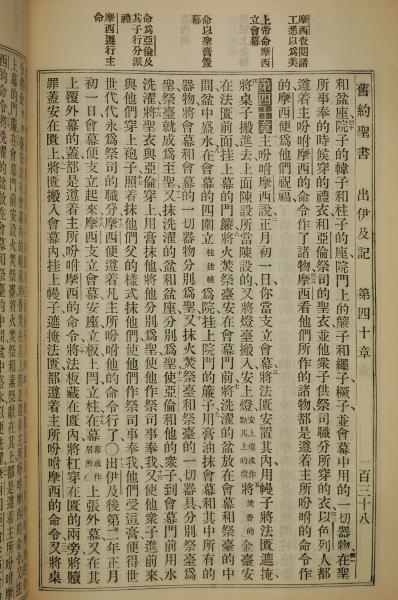 舊約聖書 出伊及記 第四十章 一百三十八
摩西查閱諸
工悉以爲美
上帝命摩西
立會幕
命以聖膏膏
幕
命爲亞倫及
其子行分派
禮
摩西遵行主
命
和盆座院子的幃子和柱子的座院門上的簾子和繩子橛子並會幕中用的一切器物在聖
所事奉的時候穿的禮衣和亞倫祭司的聖衣並他衆子供祭司職分所穿的衣以色列人都
遵着主所吩咐摩西的命令作了諸物摩西看他們所作的諸物都是遵着主所吩咐的命令作
的摩西便爲他們祝福
第四十章主吩咐摩西說正月初一日你當支立會幕將法匱安置其內用幔子將法匱遮掩
將桌子搬進去上面陳設所當陳設的又將燈臺搬入安上燈將焚香的金臺安
在法匱前面挂上幕的門簾將火焚祭臺安在會幕門前將洗濯的盆放在會幕和祭臺的中
間盆中盛水在會幕的四圍立爲院挂上院門的簾子用膏油抹會幕和其中所有的
器物將會幕和會幕的一切器物分別爲聖又抹火焚祭臺和祭臺的一切器具分別祭臺爲
聖祭臺就成爲至聖又抹洗濯的盆和盆座分別爲聖使亞倫和他的衆子到會幕門前用水
洗濯將聖衣與亞倫穿上用膏抹他將他分別爲聖使他作祭司事奉我又使他衆子進前來
與他們穿上袍子照着抹他們父的樣式抹他們使他們作祭司事奉我他們受這膏便得世
世代代永爲祭司的職分摩西便遵着凡主所吩咐他的命令行了〇出伊及後第二年正月
初一日會幕便支立起來摩西支立會幕安座立板上門立柱在幕上張外幕又在其
上覆外幕的蓋都是遵着主所吩咐摩西的命令將法板藏在匱內將杠穿在匱的兩旁將贖
罪蓋安在匱上將匱搬入會幕內挂上幔子遮掩法匱都遵着主所吩咐摩西的命令又將桌